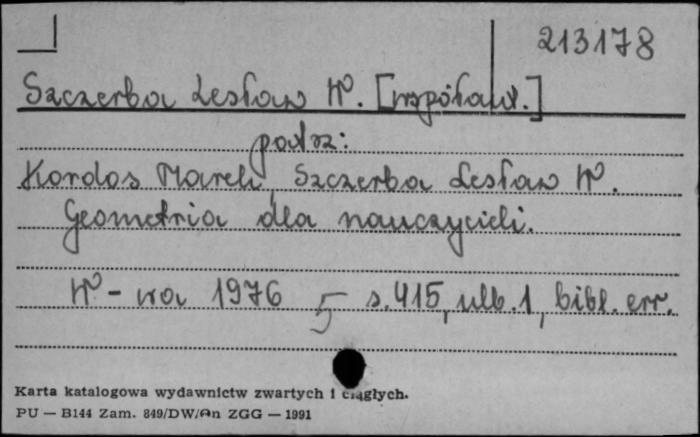 213178
Szczerba Lesław W. [współaut.]
patrz:
Kordos Marek, Szczerba Lesław W.
Geometria dla nauczycieli.
W-wa 1976 5 s. 415, nlb. 1, bibl. err.
Karta katalogowa wydawnictw zwartych i ciągłych.
PU — B144 Zam. 849/DW/An ZGG — 1991